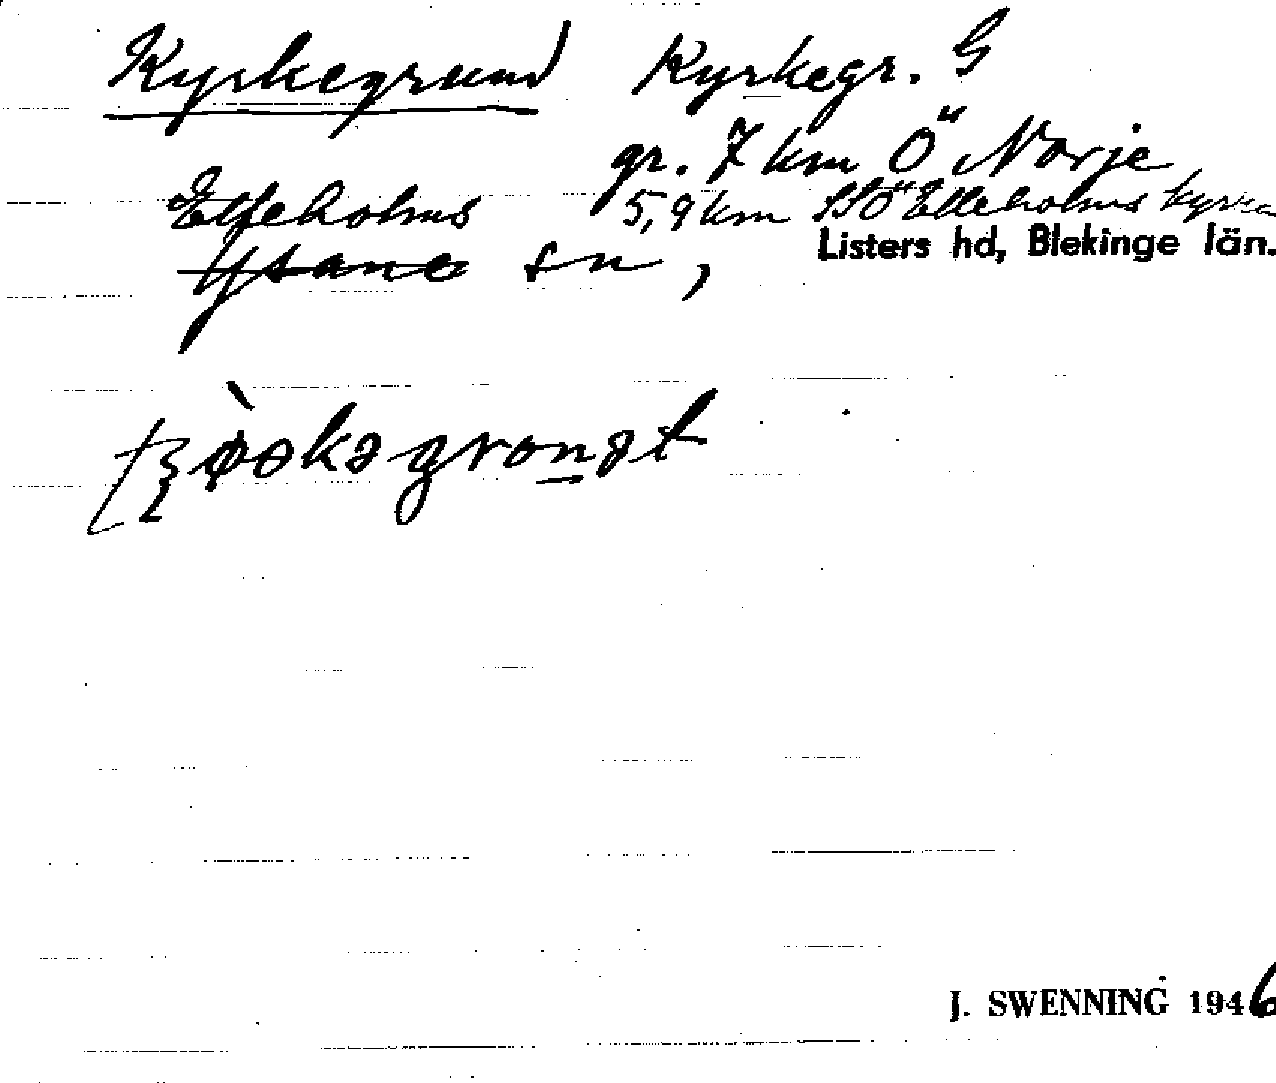 Kyrkegrund Kyrkegr. G
gr. 7 km Ö Norje
Elleholms 5,9 km SSÖ Elleholms kyrka
Ysane sn, Listers hd, Blekinge län.
J. SWENNING 1946